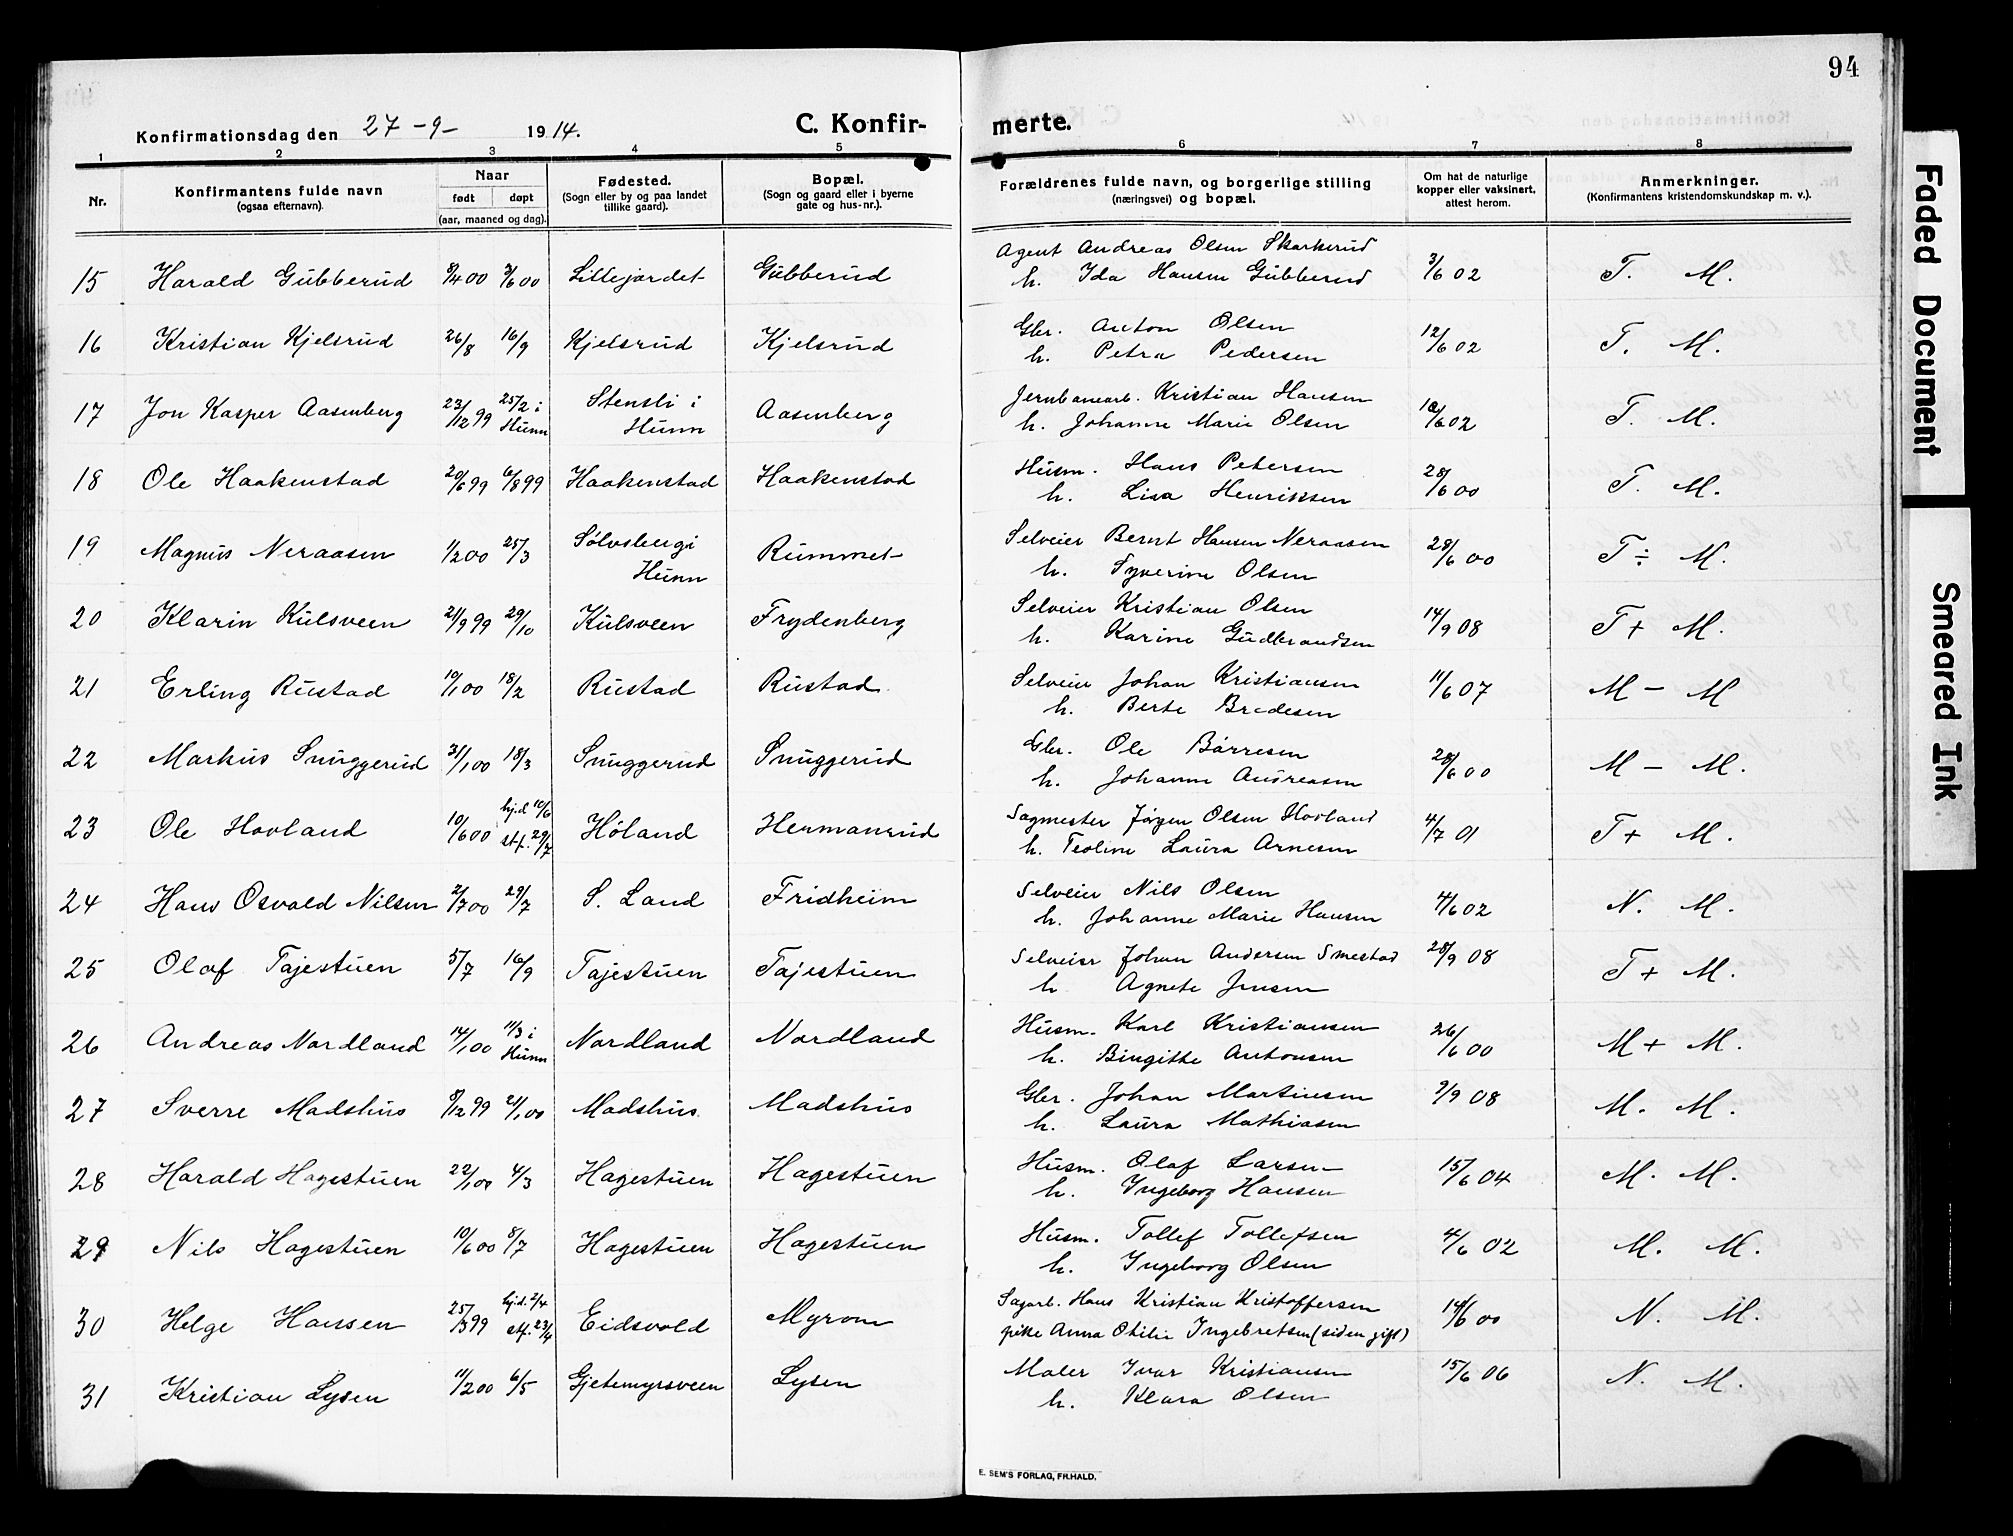 94
Konfirmationsdag den 27-9- 1914.
C. Konfir- merte.
1 2 3 4 5 6 7 8
Nr.
Konfirmantens fulde navn
(ogsaa efternavn).
Naar
født døpt
(aar, maaned og dag).
Fødested.
(Sogn eller by og paa landet
tillike gaard).
Bopæl.
(Sogn og gaard eller i byerne
gate og hus-nr.).
Forældrenes fulde navn, og borgerlige stilling
(næringsvei) og bopæl.
Om hat de naturlige
kopper eller vaksinert,
attest herom.
Anmerkninger.
(Konfirmantens kristendomskundskap m. v.).
15 Harald Gubberud 8/4 00 3/6 00 Lillejordet Gubberud Agent Andreas Olsen Skarkerud 3/6 02 T. M.
h. Ida Hansen Gubberud
16 Kristian Kjelsrud 26/8 16/9 Kjelsrud Kjelsrud Gbr. Anton Olsen 12/6 02 T. M.
h. Petra Pedersen
17 Jon Kasper Aasenberg 23/12 99 25/2 i Hunn Stensli i Hunn Aasenberg Jernbanearb. Kristian Hansen 10/6 02 T. M.
h. Johanne Marie Olsen
18 Ole Haakenstad 20/6 99 6/8 99 Haakenstad Haakenstad Husm. Hans Petersen 28/6 00 T. M.
h. Lisa Henriksen
19 Magnus Neraasen 1/2 00 25/3 Sölvsberg i Hunn Rummet Selveier Bernt Hansen Neraasen 28/6 00 T ÷ M.
h. Syverine Olsen
20 Klarin Kulsveen 21/9 99 29/10 Kulsveen Frydenberg Selveier Kristian Olsen 14/9 08 T + M.
h. Karine Gudbrandsen
21 Erling Rustad 10/1 00 18/2 Rustad Rustad. Selveier Johan Kristiansen 11/6 07 M - M
h. Berte Bredesen
22 Markus Snuggerud 31/1 00 18/3 Snuggerud Snuggerud Gbr. Ole Börresen 28/6 00 M - M.
h. Johanne Andreasen
23 Ole Hovland 10/6 00 hj.d. 10/6 stf. 29/7 Höland Hermanrud Sagmester Jörgen Olsen Hovland 4/7 01 T + M.
h. Teoline Laura Arnesen
24 Hans Osvald Nilsen 2/7 00 29/7 S. Land Fridheim Selveier Nils Olsen 4/6 02 N. M.
h. Johanne Marie Hansen
25 Olaf Tajestuen 5/7 16/9 Tajestuen Tajestuen Selveier Johan Andersen Smestad 28/9 08 T + M.
h Agnete Jensen
26 Andreas Nordland 14/1 00 11/3 i Hunn Nordland Nordland Husm. Karl Kristiansen 26/6 00 M + M.
h. Birgitte Antonsen
27 Sverre Madshus 8/12 99 21/1 00 Madshus. Madshus Gbr. Johan Martinsen 7/9 08 M. M.
h. Laura Mathiasen
28 Harald Hagestuen 22/1 00 4/3 Hagestuen Hagestuen Husm. Olaf Larsen 15/6 04 M. M.
h. Ingeborg Hansen
29 Nils Hagestuen 10/6 00 8/7 Hagestuen Hagestuen Husm. Tollef Tollefsen 4/6 02 M. M.
h. Ingeborg Olsen
30 Helge Hansen 25/3 99 hj.d. 2/4 stf. 23/4 Eidsvold Myrom Sagarb. Hans Kristian Kristoffersen 14/6 00 N. M.
pike Anna Otilie Ingebretsen (siden gift)
31 Kristian Lysen 11/2 00 6/5 Gjetemyrsveen Lysen Maler Ivar Kristiansen 15/6 06 N. M.
h. Klara Olsen
E. SEM'S FORLAG, FR.HALD.
Faded Document
Smeared Ink